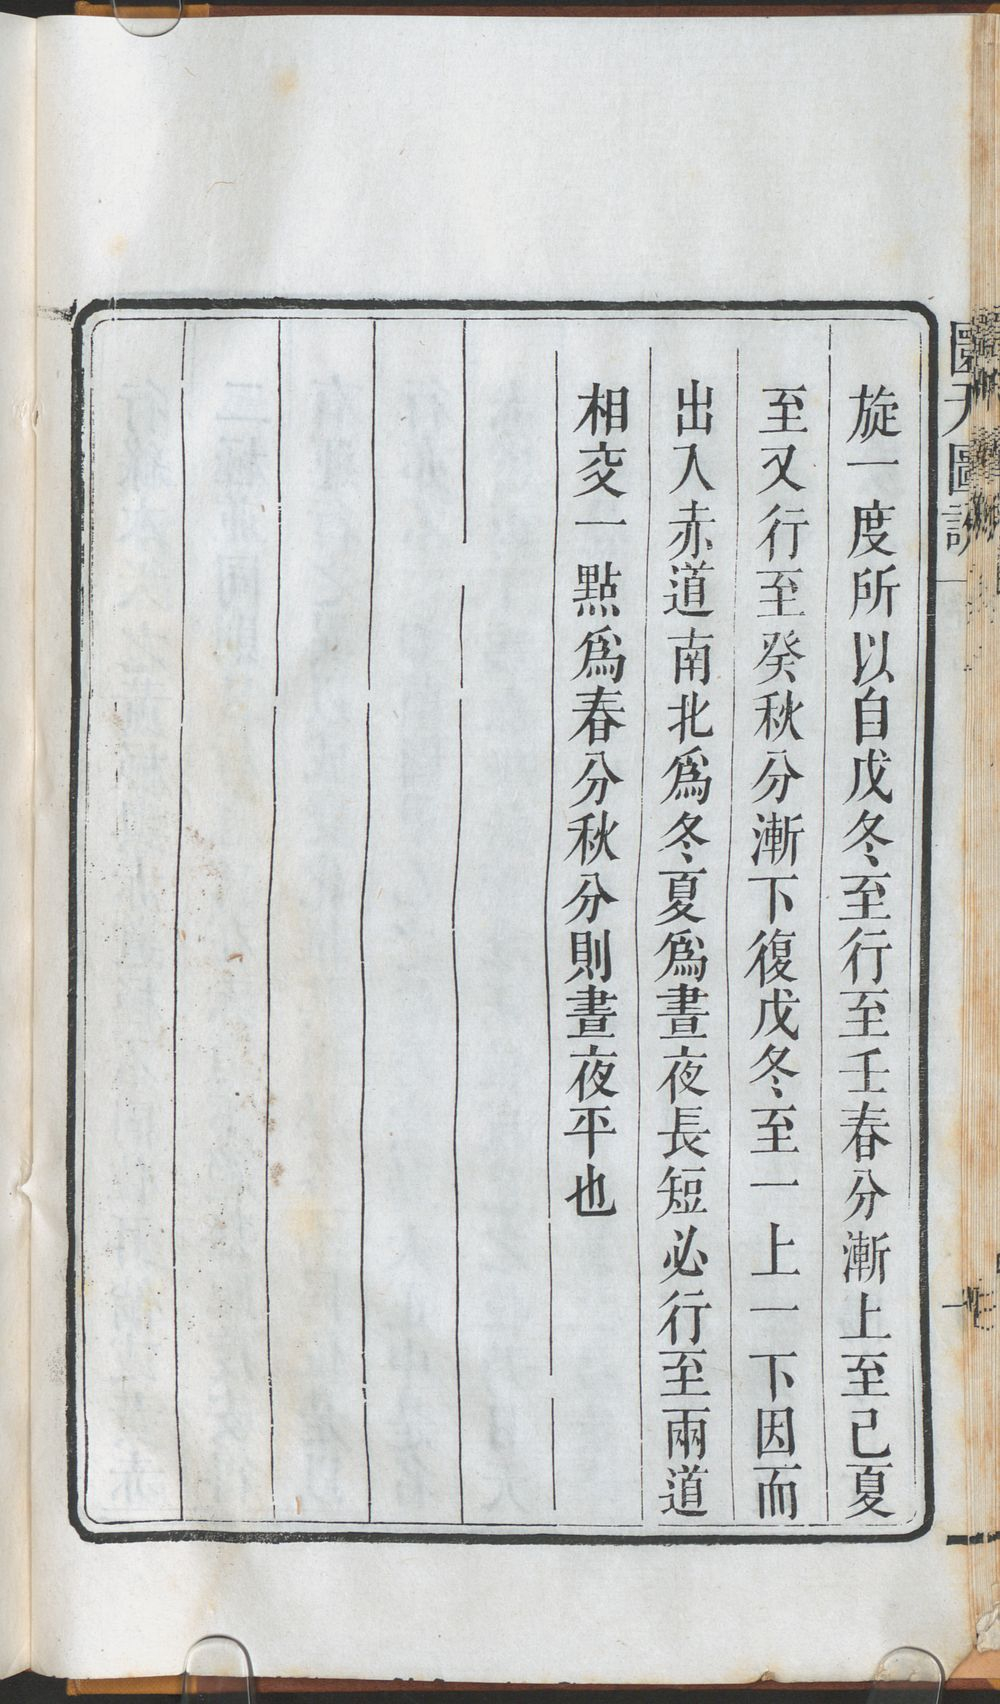 旋一度所以自戊冬至行至壬春分漸上至己夏
至又行至癸秋分漸下復戊冬至一上一下因而
出入赤道南北爲冬夏爲晝夜長短必行至兩道
相交一點爲春分秋分則晝夜平也
圖說